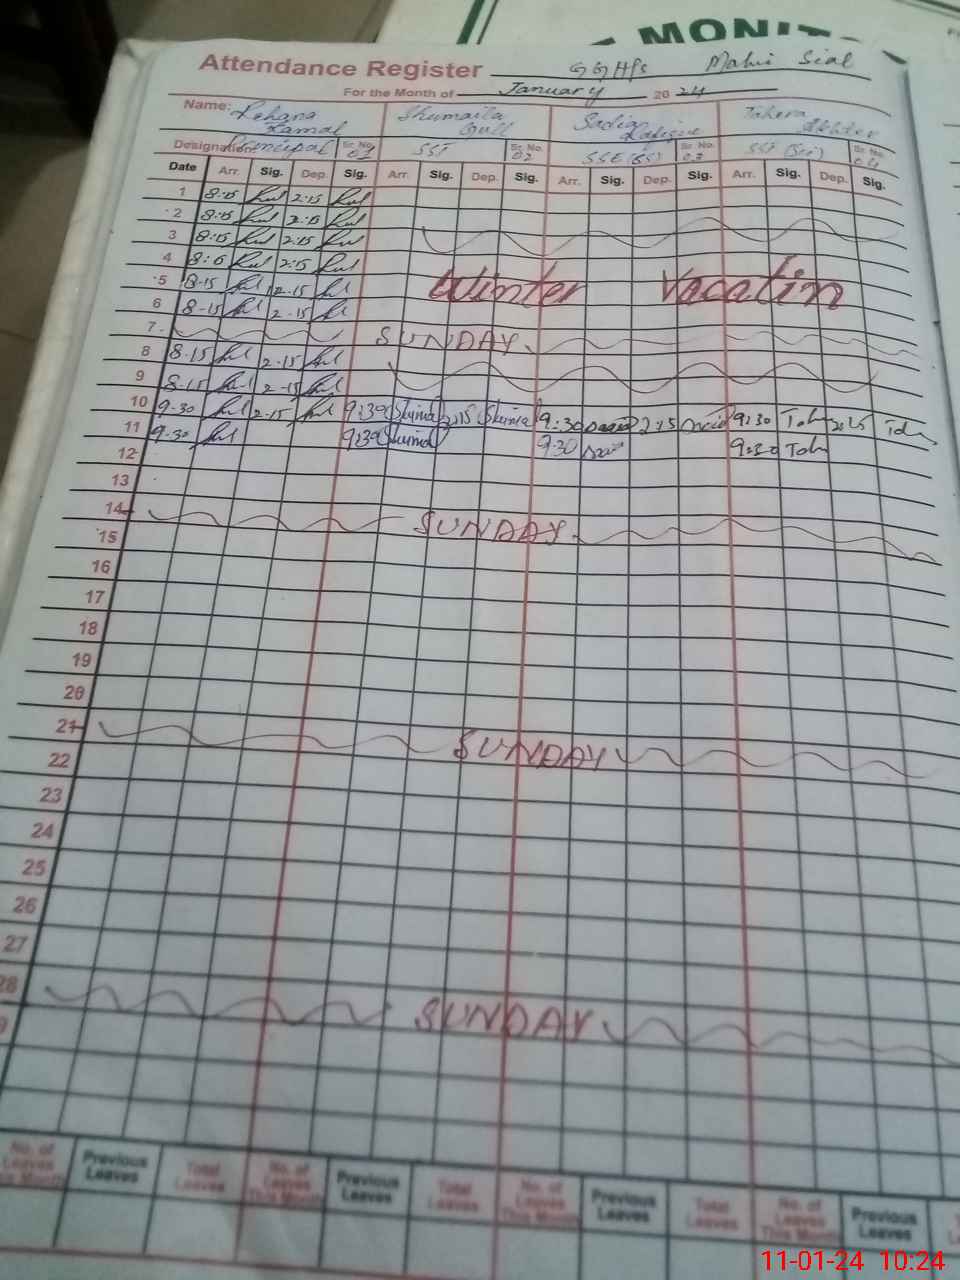 MONIT
Attendance Register GGHPS Mahni Sial
For the Month of January 2024
Name: Rehana Kamal Shumaila Gull Sadia Rafique Tahera Akhter
Designation Principal Sr. No. 01 SST Sr. No. 02 SSE (SS) Sr. No. 03 SST (Sci) Sr. No. 04
Date Arr. Sig. Dep. Sig. Arr. Sig. Dep. Sig. Arr. Sig. Dep. Sig. Arr. Sig. Dep. Sig.
1 8:15 2:15
2 8:15 2:15
3 8:15 2:15
4 8:15 2:15
5 8-15 2-15 Winter Vacation
6 8-15 2-15
7 SUNDAY
8 8.15 2-15
9 8-15 2-15
10 9-30 2-15 9:30 2:15 9:30 2:15 9:30 2:15
11 9-30 9:30 9:30 9:30
12
13
14 SUNDAY
15
16
17
18
19
20
21 SUNDAY
22
23
24
25
26
27
28 SUNDAY
9
No. of Leaves This Month Previous Leaves Total Leaves No. of Leaves This Month Previous Leaves Total Leaves No. of Leaves This Month Previous Leaves Total Leaves No. of Leaves This Month Previous Leaves
11-01-24 10:24